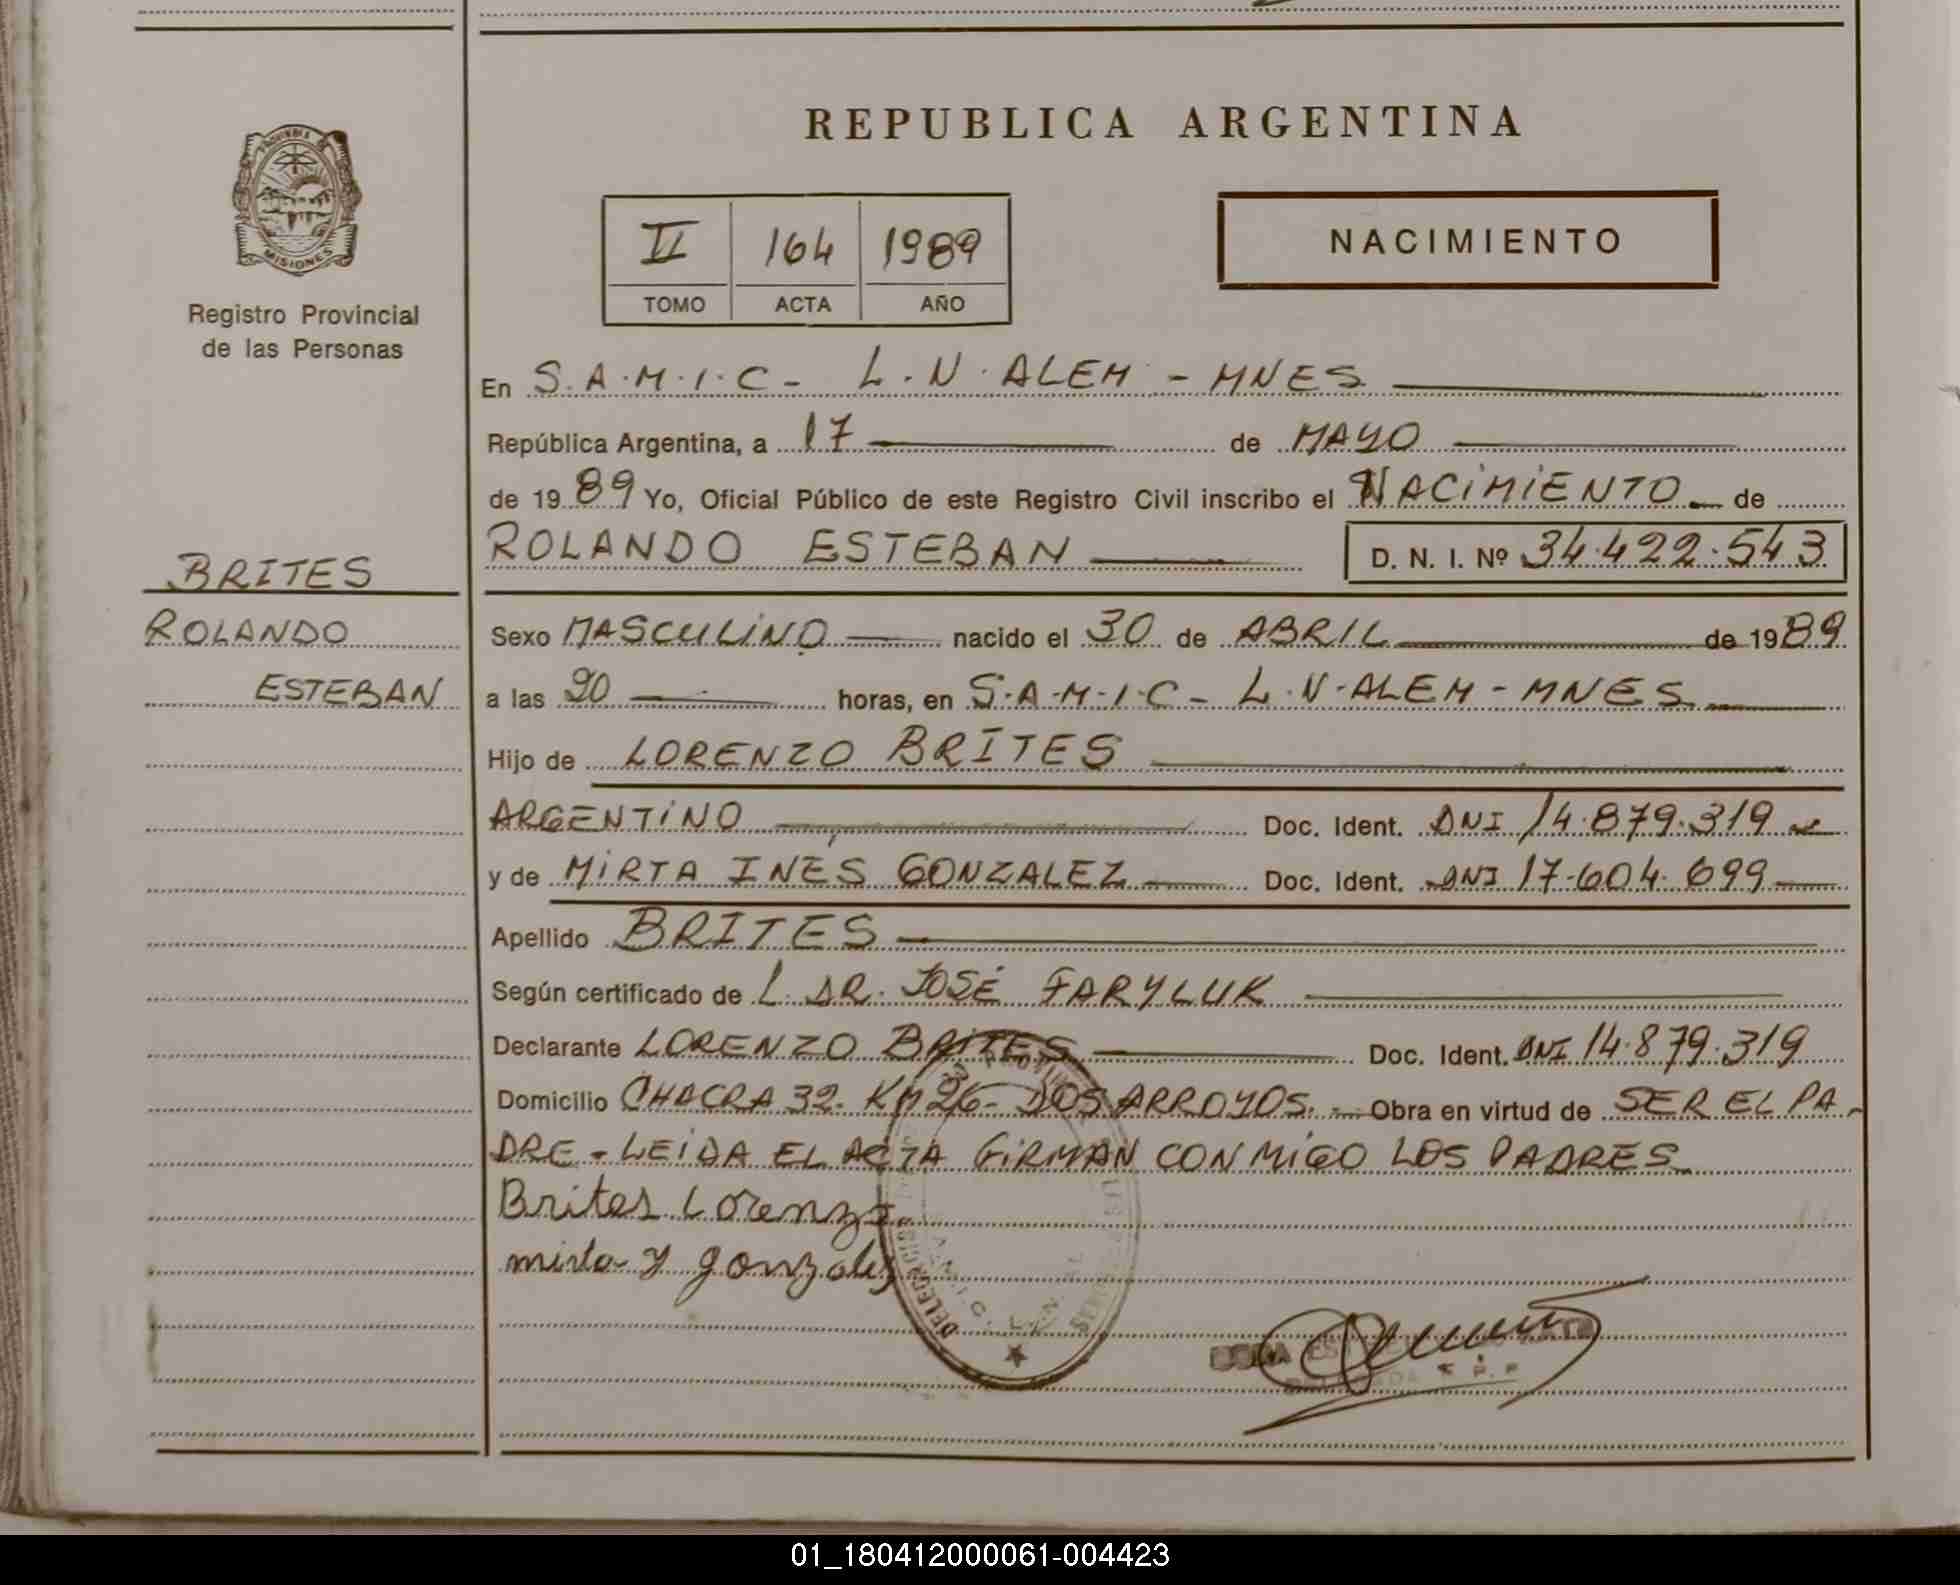 REPUBLICA ARGENTINA
MISIONES
Registro Provincial
de las Personas
II 164 1989
TOMO ACTA AÑO
NACIMIENTO
En S.A.M.I.C - L.N.ALEM - MNES
República Argentina, a 17 de MAYO
de 1989 Yo, Oficial Público de este Registro Civil inscribo el NACIMIENTO de
ROLANDO ESTEBAN D. N. I. Nº 34.422.543
BRITES
ROLANDO
ESTEBAN
Sexo MASCULINO nacido el 30 de ABRIL de 1989
a las 20 horas, en S.A.M.I.C - L.N.ALEM - MNES
Hijo de LORENZO BRITES
ARGENTINO Doc. Ident. DNI 14.879.319
y de MIRTA INES GONZALEZ Doc. Ident. DNI 17.604.699
Apellido BRITES
Según certificado de L. DR. JOSÉ FARYLUK
Declarante LORENZO BRITES Doc. Ident. DNI 14.879.319
Domicilio CHACRA 32. KM 26 - DOS ARROYOS. Obra en virtud de SER EL PA-
DRE - LEIDA EL ACTA FIRMAN CONMIGO LOS PADRES
Brites Lorenzo
mirta y gonzalez
01_180412000061-004423